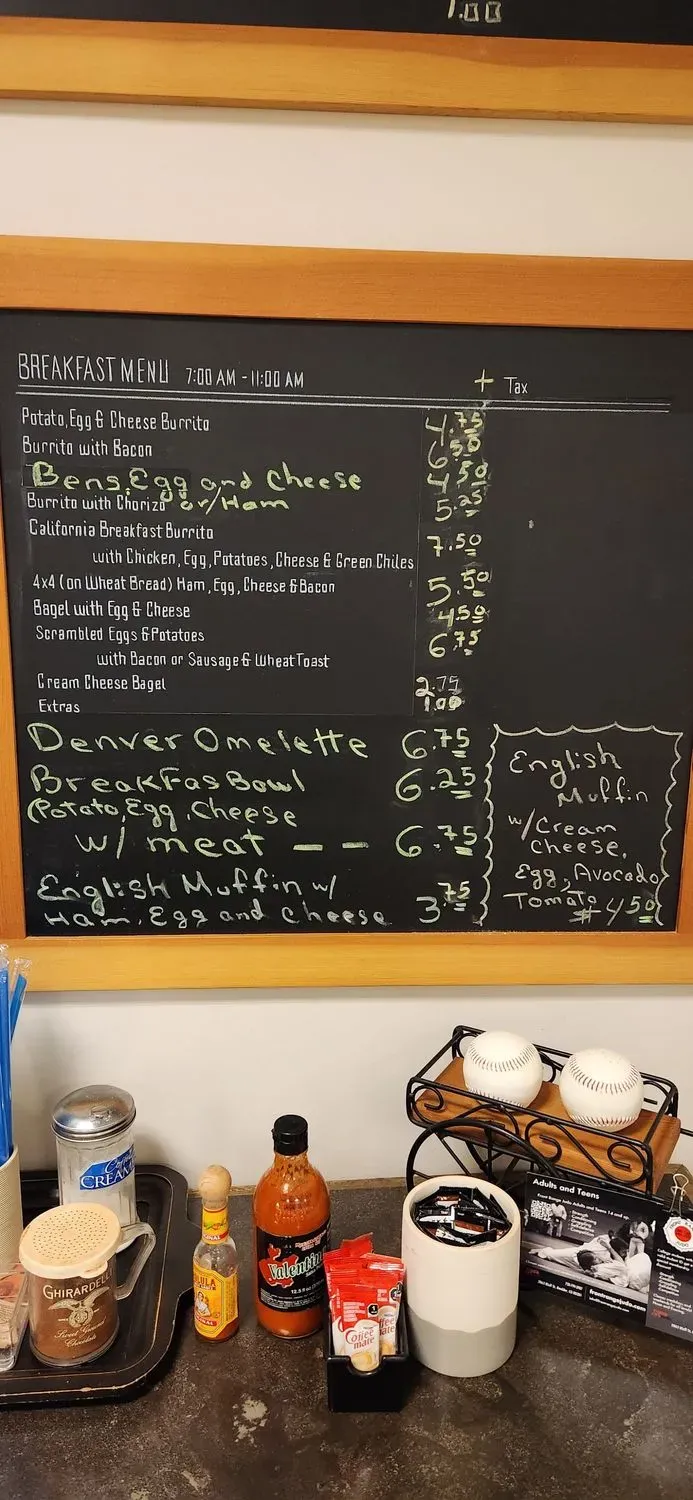 1.00
BREAKFAST MENU 7:00 AM - 11:00 AM + Tax
Potato, Egg & Cheese Burrito 4.75
Burrito with Bacon 6.50
Bens, Egg and Cheese 4.50
Burrito with Chorizo or/Ham 5.25
California Breakfast Burrito
with Chicken, Egg, Potatoes, Cheese & Green Chiles 7.50
4x4 (on Wheat Bread) Ham, Egg, Cheese & Bacon 5.50
Bagel with Egg & Cheese 4.50
Scrambled Eggs & Potatoes 6.75
with Bacon or Sausage & Wheat Toast
Cream Cheese Bagel 2.75
Extras 1.00
Denver Omelette 6.75
BreakFas Bowl 6.25
(Potato, Egg, Cheese
w/ meat -- 6.75
English Muffin w/
Ham, Egg and Cheese 3.75
English
Muffin
w/Cream
Cheese,
Egg, Avocado
Tomato
$ 4.50
CREAM
GHIRARDELLI
Sweet Ground
Chocolate
Valentina
12.5 fl oz
Coffee
mate
Adults and Teens